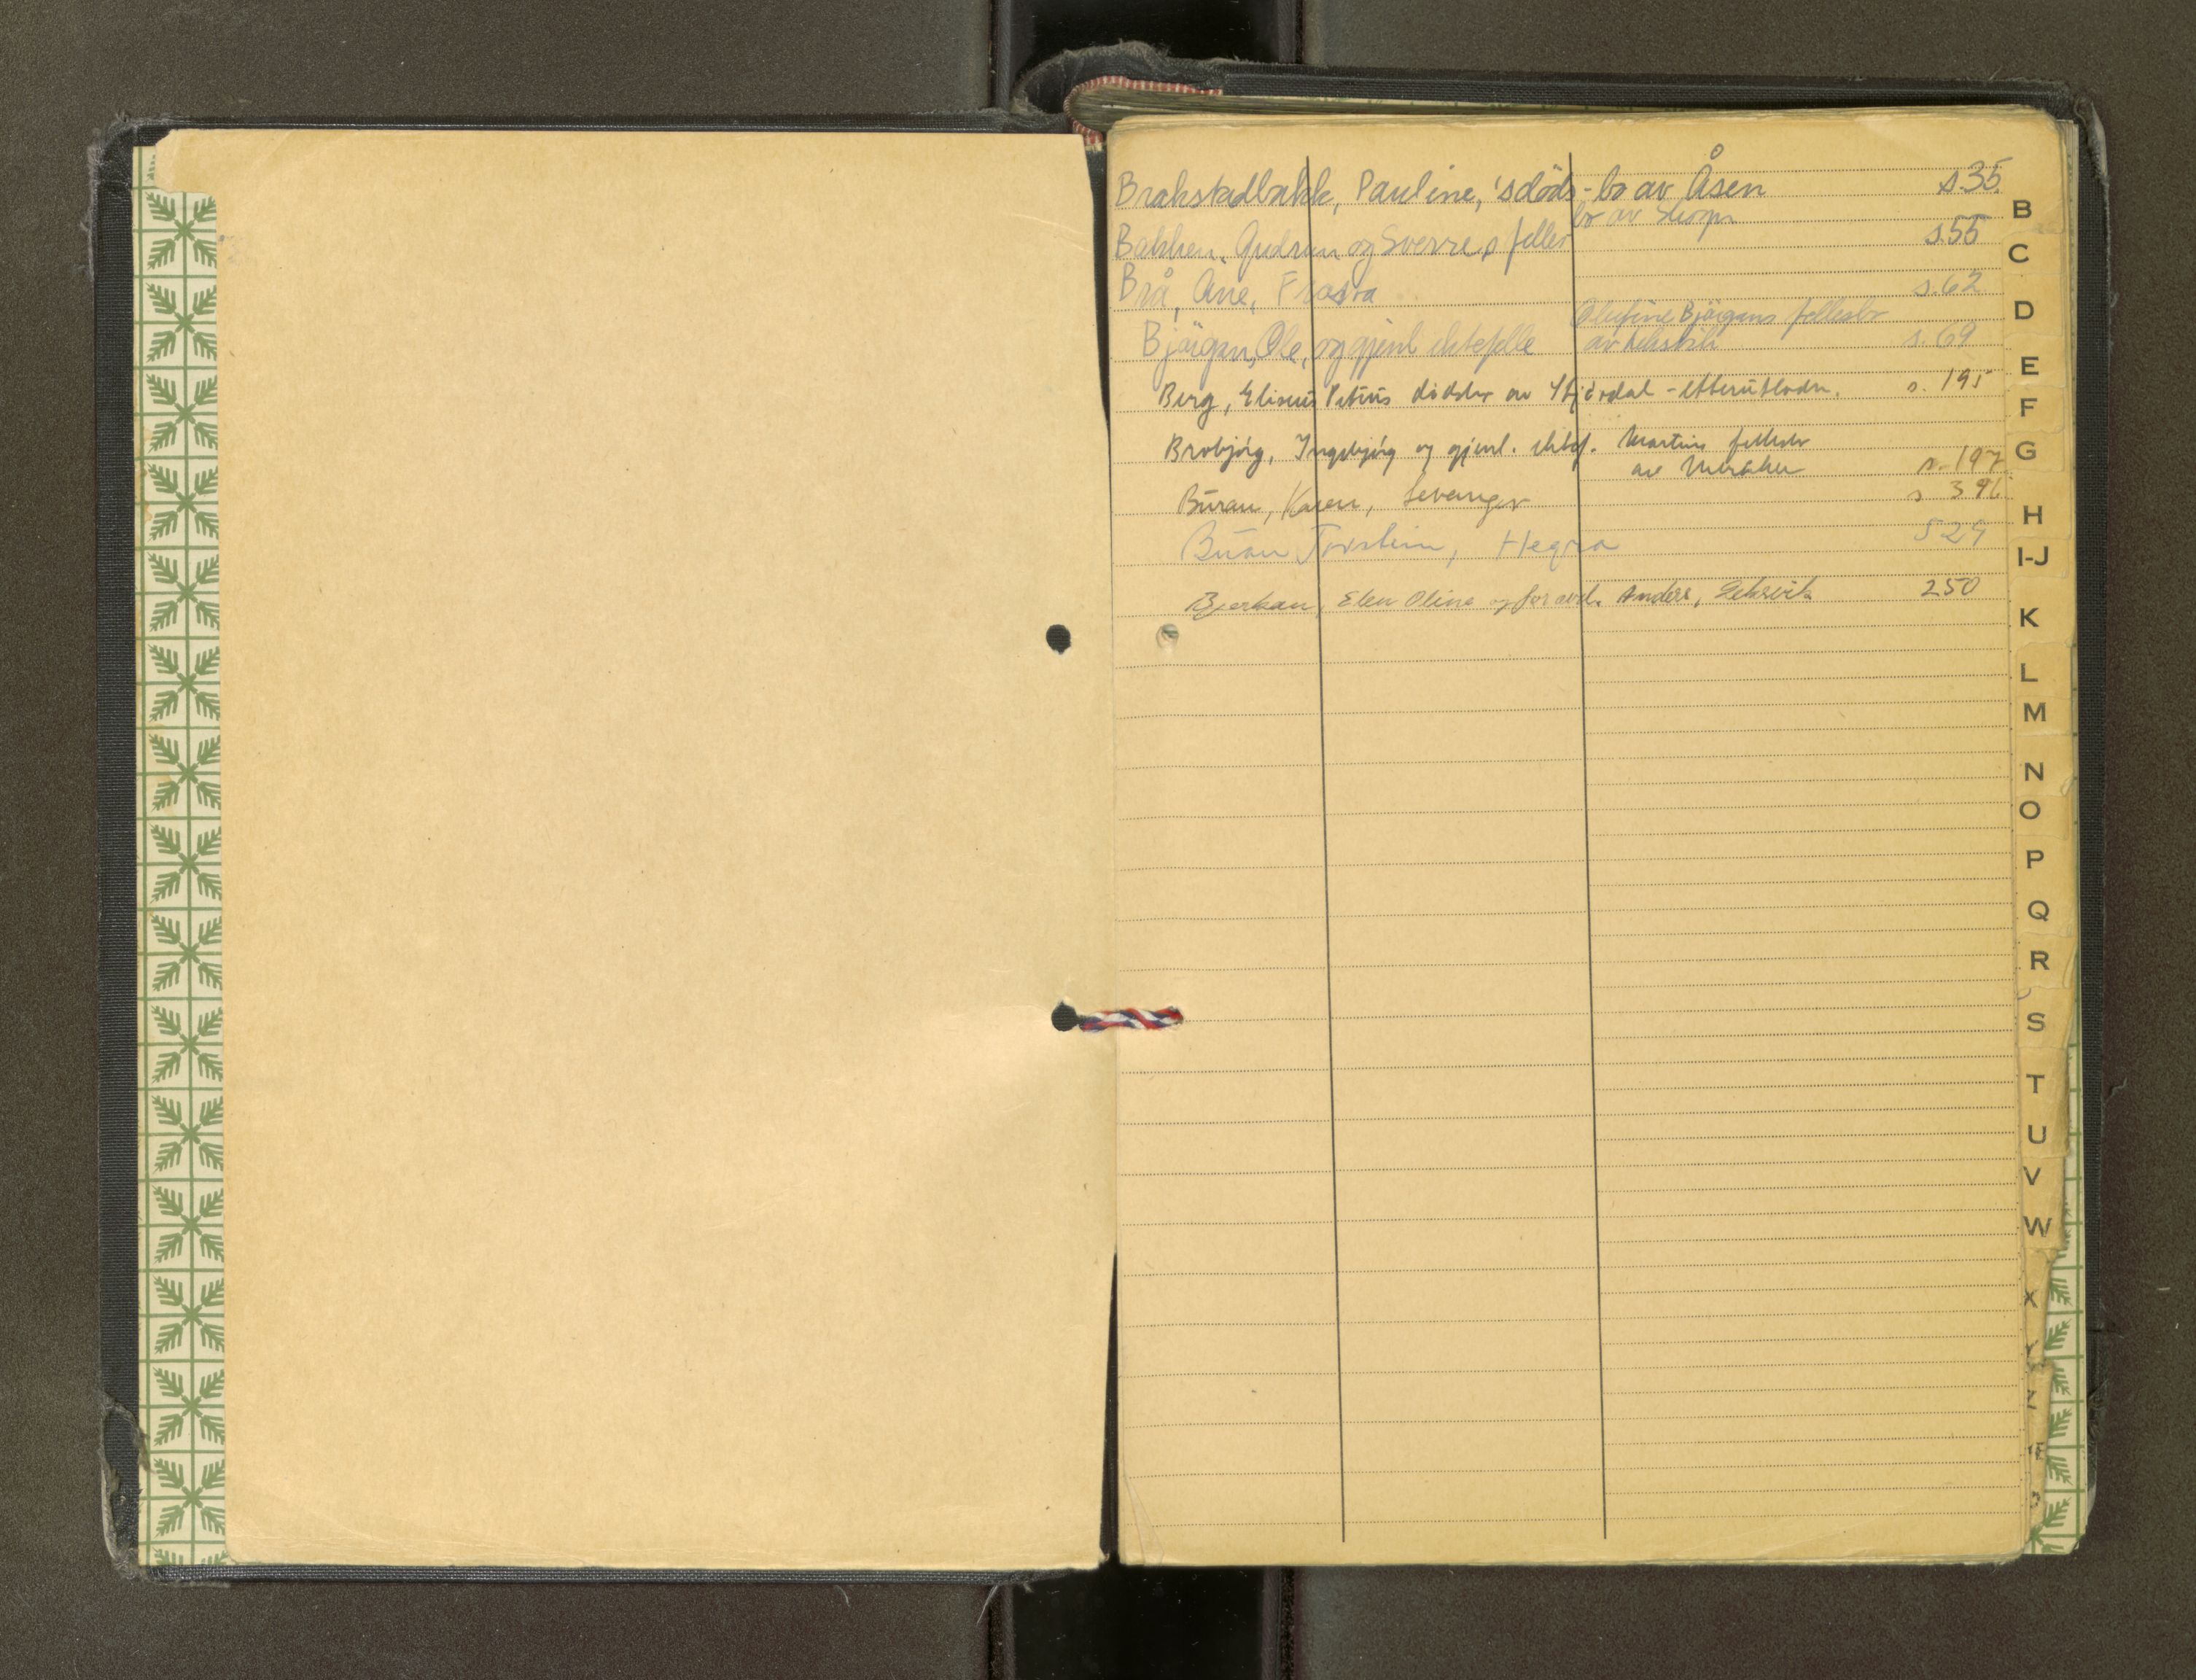 Brakstadbakk, Pauline, 's döds-bo av Åsen s. 35
Bakken, Gudrun og Sverre, s felles bo av s. 55
Brå, Ane, Frosta s. 62
Björgan, Ole, og gjenl ektefelle Olufine Björgans fellesbo
av Leksvik s. 69
Berg, Eliseus Petrus dødsbo av Stjørdal - etterutlodn. s. 195
Brobjørg, Ingebjørg og gjenl. ektef. Martins fellesbo
av Meråker s. 197
Buran, Karen, Levanger s 396
Buan Torstein, Hegra 529
Bjerkan, Elen Oline og for avd. Anders, Leksvik 250
B
C
D
E
F
G
H
I-J
K
L
M
N
O
P
Q
R
S
T
U
V
W
X
Y
Z